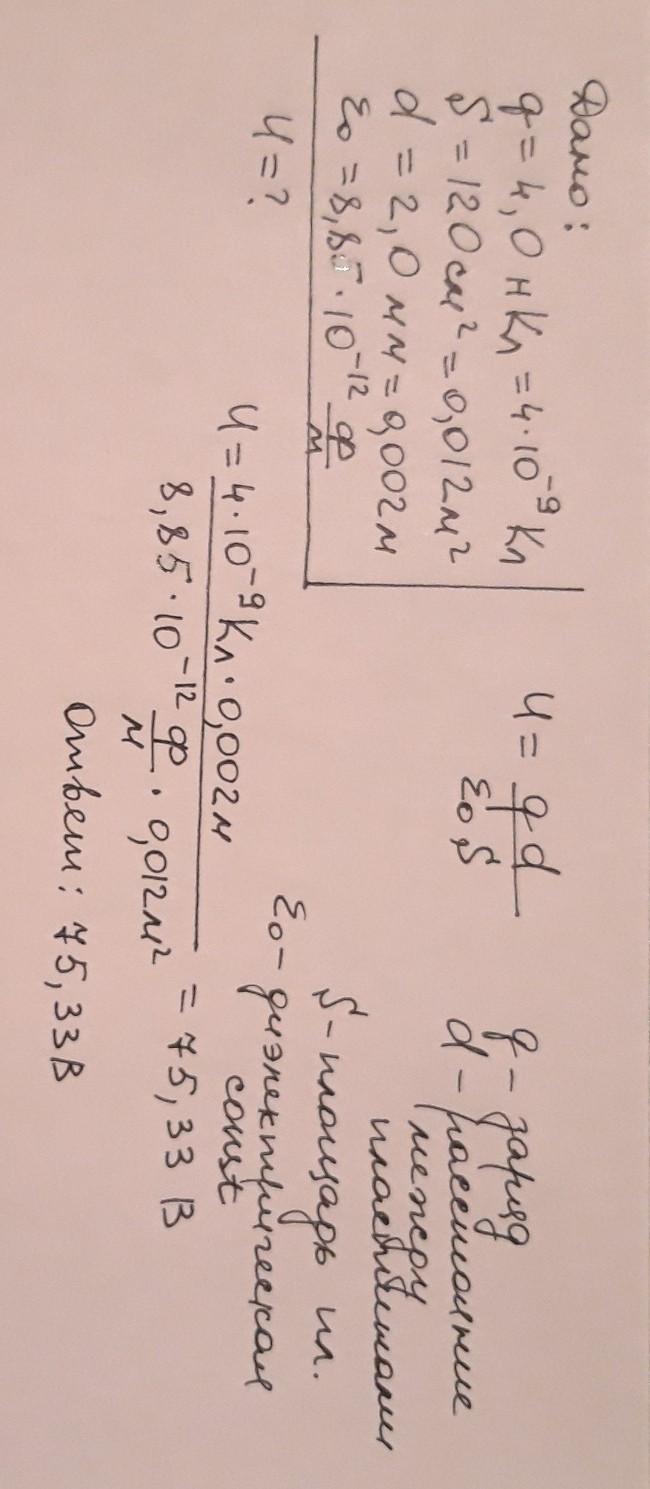 Дано:
q = 4,0 нКл = 4·10⁻⁹ Кл
S = 120 см² = 0,012 м²
d = 2,0 мм = 0,002 м
ε₀ = 8,85·10⁻¹² Ф/м
U = ?
U = qd/ε₀S
q – заряд
d – расстояние
между
пластинами
S – площадь пл.
ε₀ – диэлектрическая
const
U = 4·10⁻⁹ Кл · 0,002 м / 8,85·10⁻¹² Ф/м · 0,012 м² = 75,33 В
Ответ: 75,33 В